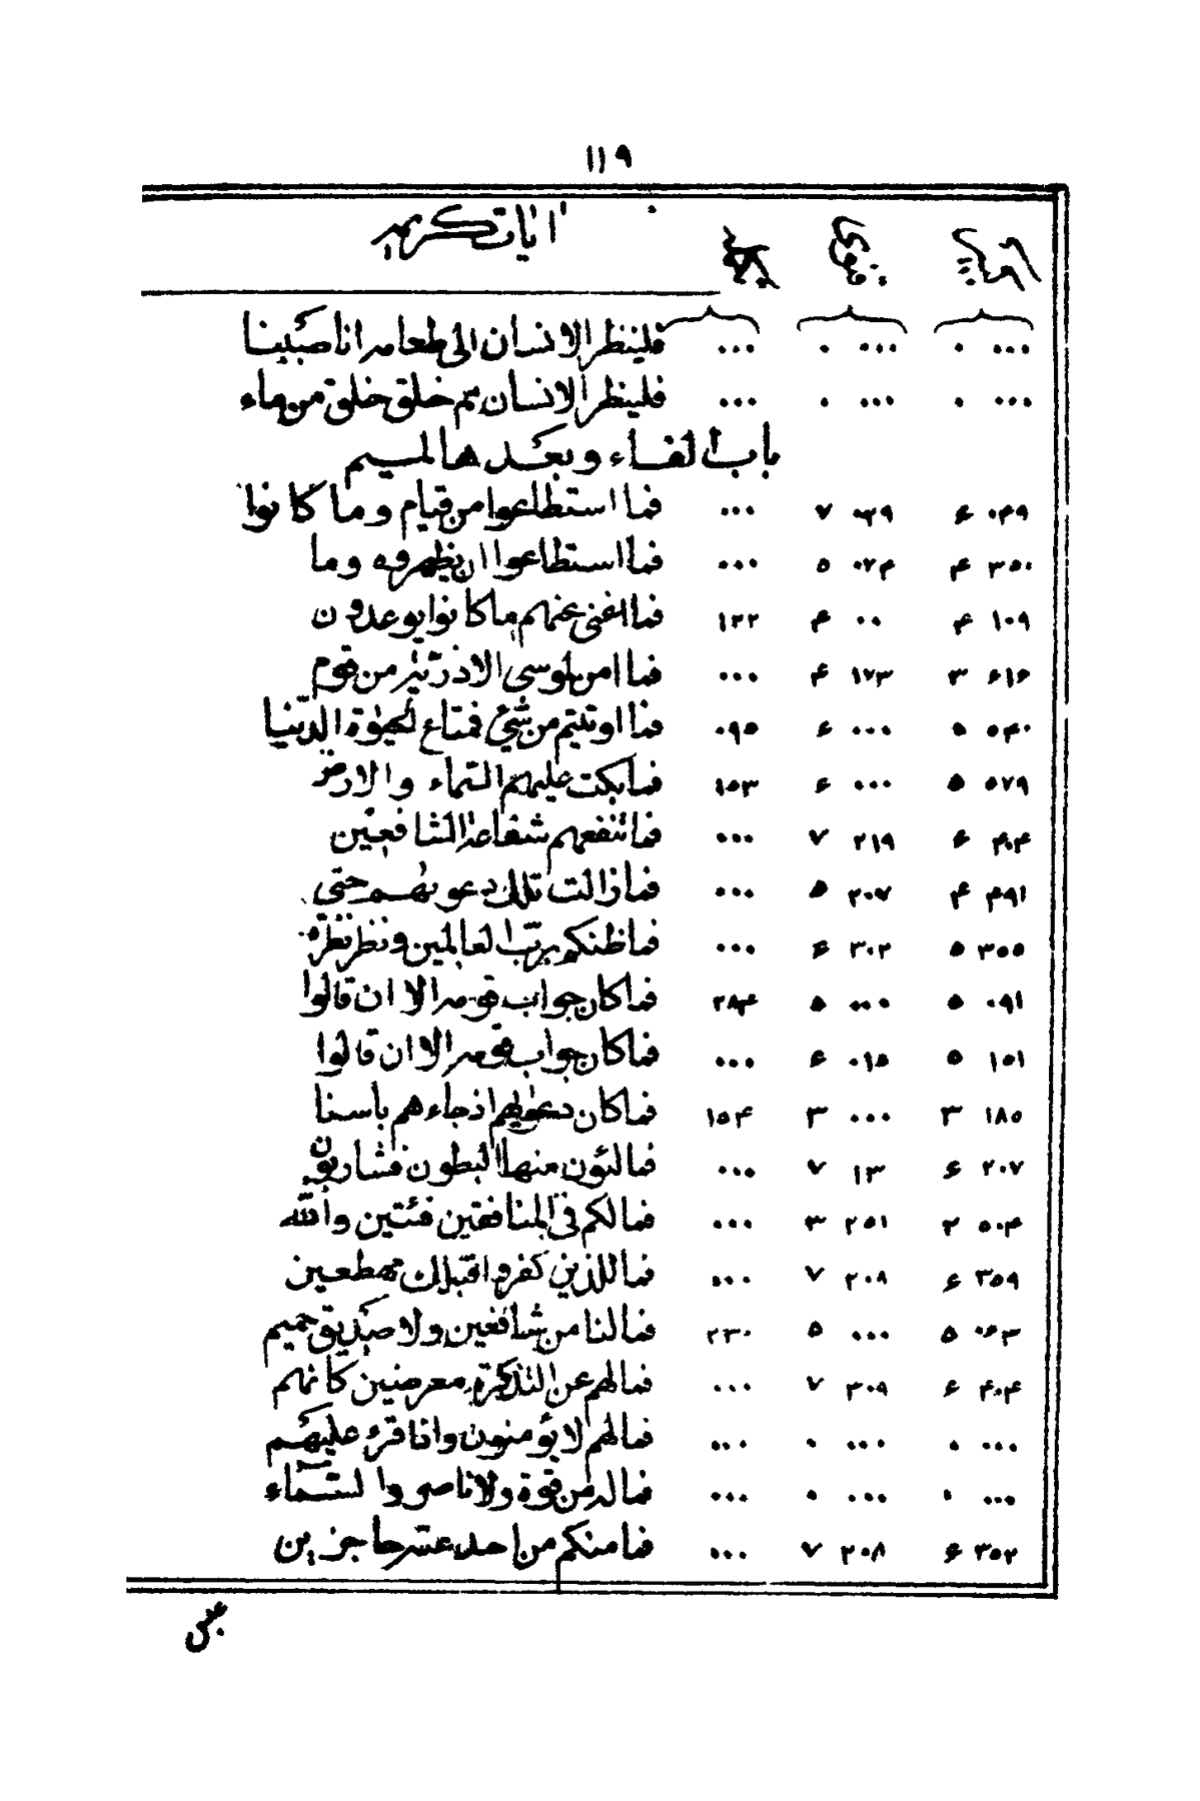 ١١٩
آيات كريمه
٠٠٠ ٠ ٠٠٠ ٠ ٠٠٠ فلينظر الانسان الى طعامه انا صببنا
٠٠٠ ٠ ٠٠٠ ٠ ٠٠٠ فلينظر الانسان مم خلق خلق من ماء
باب الفاء وبعدها الميم
٠۴٩ ۶ ٠٣٩ ٧ ٠٠٠ فما استطاعوا من قيام وما كانوا
٣٥٠ ۴ ٠٢۴ ٥ ٠٠٠ فما استطاعوا ان يظهروه وما
١٠٩ ۴ ٠٠ ۴ ١٢٢ فما اغنى عنهم ما كانوا يوعدون
۶١۶ ٣ ١٧٣ ۴ ٠٠٠ فما امن لموسى الا ذرّيّة من قوم
٥۴٠ ٥ ٠٠٠ ۶ ٠٩٥ فما اوتيتم من شئ فمتاع الحيوة الدّنيا
٥٧٩ ٥ ٠٠٠ ۶ ١٥٣ فما بكت عليهم السّماء والارض
۴٠۴ ۶ ٢١٩ ٧ ٠٠٠ فما تنفعهم شفاعة الشافعين
۴٩١ ۴ ٢٠٧ ٥ ٠٠٠ فما زالت تلك دعويهم حتى
٣٥٥ ٥ ٣٠٢ ۶ ٠٠٠ فما ظنكم بربّ العالمين ونظر نظرة
٠٩١ ٥ ٠٠٠ ٥ ٢٨۴ فما كان جواب قومه الا ان قالوا
١٥١ ٥ ٠١٥ ۶ ٠٠٠ فما كان جواب قومه الا ان قالوا
١٨٥ ٣ ٠٠٠ ٣ ١٥۴ فما كان دعويهم اذ جاءهم باسنا
٢٠٧ ۶ ١٣ ٧ ٠٠٠ فمالئون منها البطون فشاربون
٥٠۴ ٢ ٢٥١ ٣ ٠٠٠ فما لكم فى المنافقين فئتين والله
٣٥٩ ۶ ٢٠٨ ٧ ٠٠٠ فما للذين كفروا قبلك مهطعين
٠۶٣ ٥ ٠٠٠ ٥ ٢٣٠ فما لنا من شافعين ولا صديق حميم
۴٠۴ ۶ ٣٠٩ ٧ ٠٠٠ فما لهم عن التذكرة معرضين كانهم
٠٠٠ ٠ ٠٠٠ ٠ ٠٠٠ فما لهم لا يؤمنون واذا قرء عليهم
٠٠٠ ٠ ٠٠٠ ٠ ٠٠٠ فما له من قوة ولا ناصر والسّماء
٣٥٢ ۶ ٢٠٨ ٧ ٠٠٠ فما منكم من احد عنه حاجزين